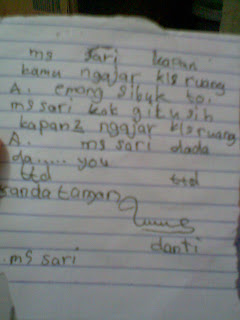 ms sari kapan
kamu ngajar kls ruang
A. emang sibuk to.
ms sari kok gitu sih
kapan2 ngajar kls ruang
A. ms sari dada
da..... you
ttd ttd
tanda tangan
danti
ms sari